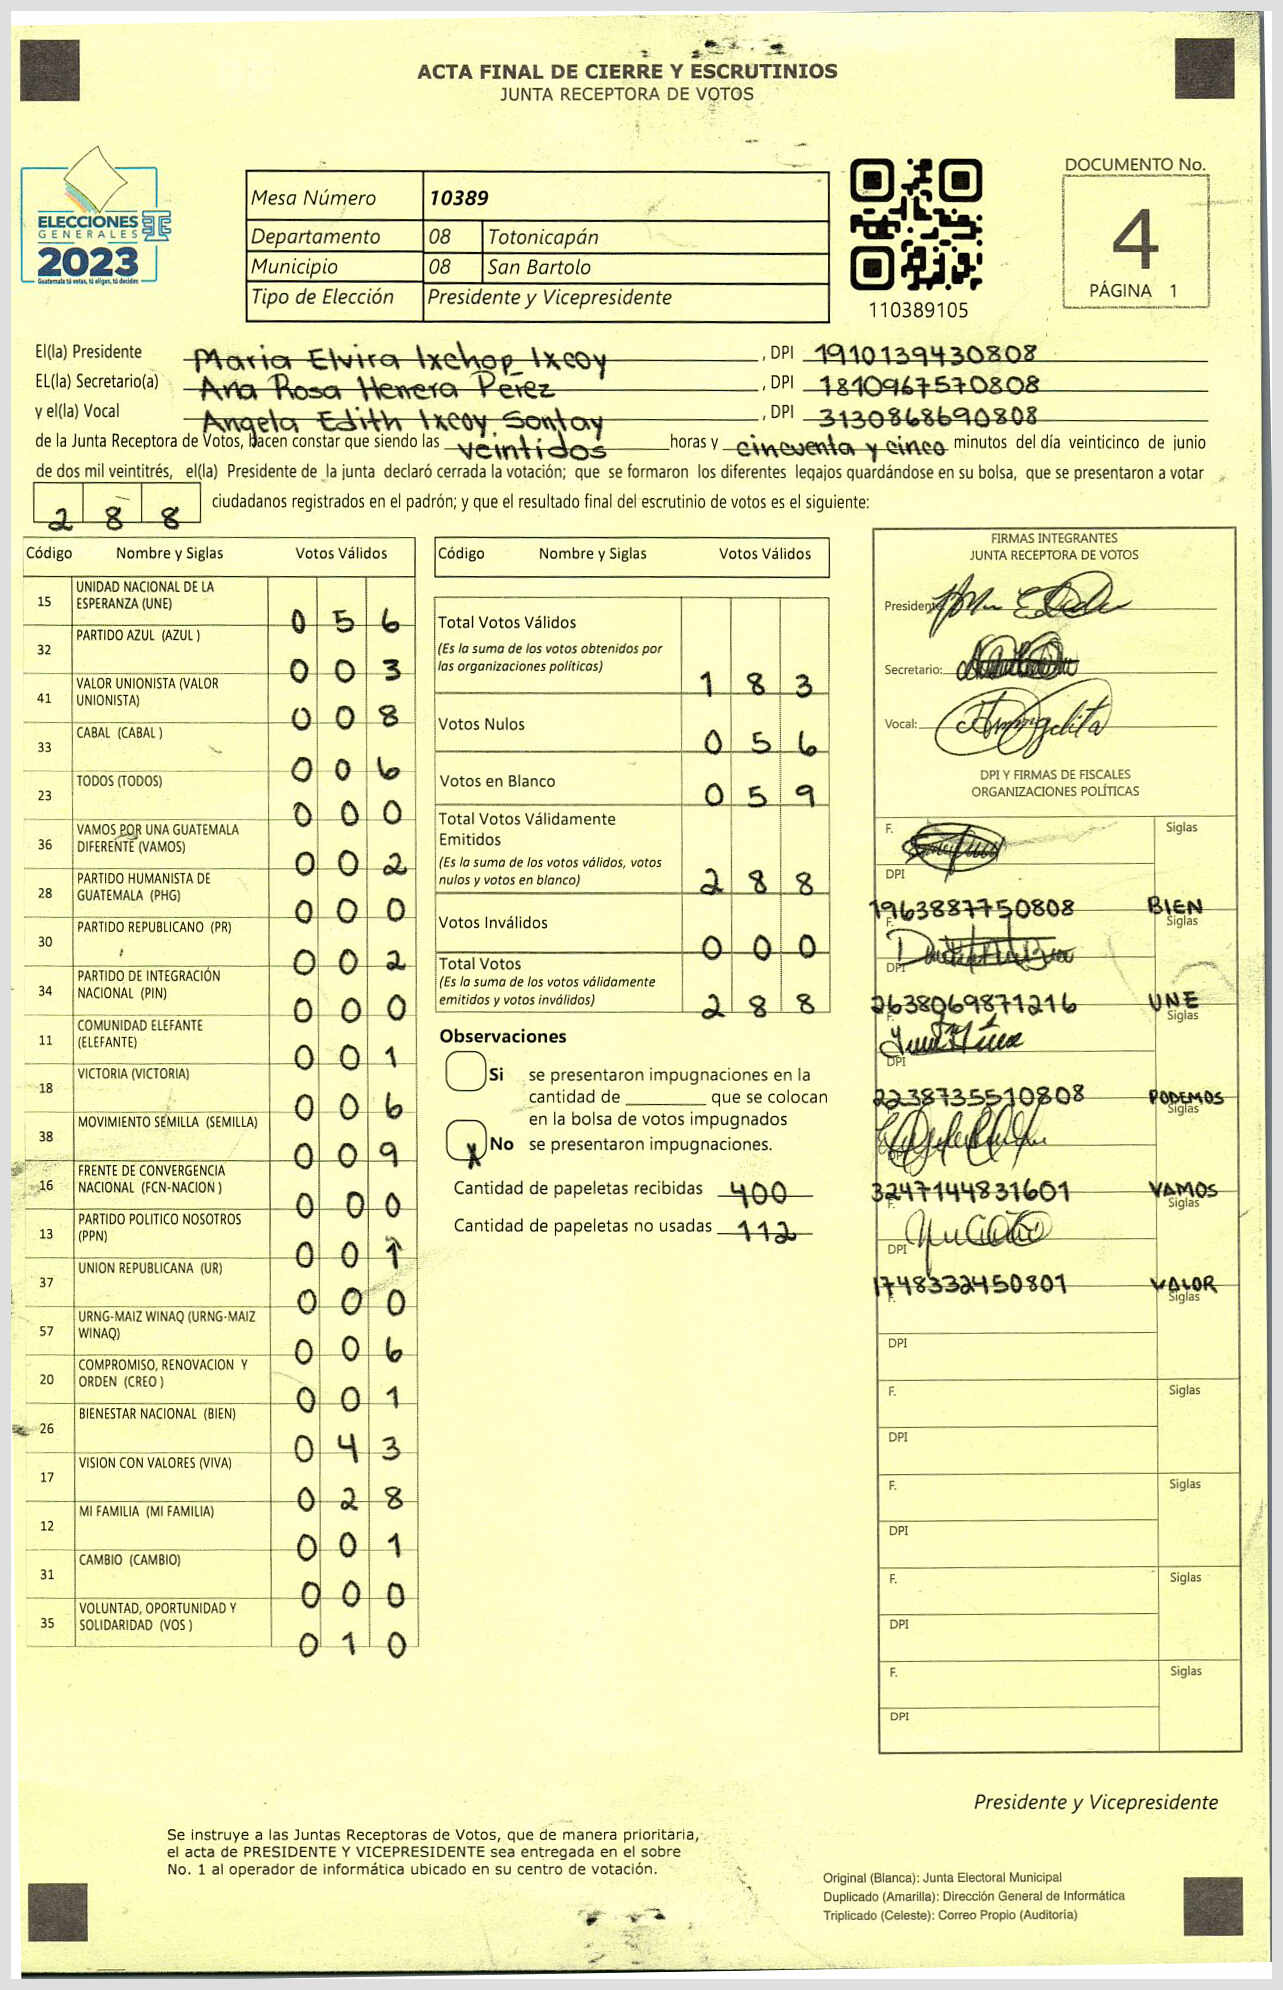 ACTA FINAL DE CIERRE Y ESCRUTINIOS
JUNTA RECEPTORA DE VOTOS
ELECCIONES
GENERALES
2023
Guatemala tú votas, tú eliges, tú decides
Mesa Número 10389
Departamento 08 Totonicapán
Municipio 08 San Bartolo
Tipo de Elección Presidente y Vicepresidente
110389105
DOCUMENTO No.
4
PÁGINA 1
El(la) Presidente Maria Elvira Ixchop Ixcoy , DPI 1910139430808
EL(la) Secretario(a) Ana Rosa Herrera Perez , DPI 1810967570808
y el(la) Vocal Angela Edith Ixcoy Sontay , DPI 3130868690808
de la Junta Receptora de Votos, hacen constar que siendo las veintidos horas y cincuenta y cinco minutos del día veinticinco de junio
de dos mil veintitrés, el(la) Presidente de la junta declaró cerrada la votación; que se formaron los diferentes legajos guardándose en su bolsa, que se presentaron a votar
288 ciudadanos registrados en el padrón; y que el resultado final del escrutinio de votos es el siguiente:
Código Nombre y Siglas Votos Válidos
15 UNIDAD NACIONAL DE LA ESPERANZA (UNE) 056
32 PARTIDO AZUL (AZUL ) 003
41 VALOR UNIONISTA (VALOR UNIONISTA) 008
33 CABAL (CABAL ) 006
23 TODOS (TODOS) 000
36 VAMOS POR UNA GUATEMALA DIFERENTE (VAMOS) 002
28 PARTIDO HUMANISTA DE GUATEMALA (PHG) 000
30 PARTIDO REPUBLICANO (PR) 002
34 PARTIDO DE INTEGRACIÓN NACIONAL (PIN) 000
11 COMUNIDAD ELEFANTE (ELEFANTE) 001
18 VICTORIA (VICTORIA) 006
38 MOVIMIENTO SEMILLA (SEMILLA) 009
16 FRENTE DE CONVERGENCIA NACIONAL (FCN-NACION ) 000
13 PARTIDO POLITICO NOSOTROS (PPN) 001
37 UNION REPUBLICANA (UR) 000
57 URNG-MAIZ WINAQ (URNG-MAIZ WINAQ) 006
20 COMPROMISO, RENOVACION Y ORDEN (CREO ) 001
26 BIENESTAR NACIONAL (BIEN) 043
17 VISION CON VALORES (VIVA) 028
12 MI FAMILIA (MI FAMILIA) 001
31 CAMBIO (CAMBIO) 000
35 VOLUNTAD, OPORTUNIDAD Y SOLIDARIDAD (VOS ) 010
Código Nombre y Siglas Votos Válidos
Total Votos Válidos 183
(Es la suma de los votos obtenidos por
las organizaciones políticas)
Votos Nulos 056
Votos en Blanco 059
Total Votos Válidamente
Emitidos 288
(Es la suma de los votos válidos, votos
nulos y votos en blanco)
Votos Inválidos 000
Total Votos 288
(Es la suma de los votos válidamente
emitidos y votos inválidos)
Observaciones
Si se presentaron impugnaciones en la
cantidad de ________ que se colocan
en la bolsa de votos impugnados
X No se presentaron impugnaciones.
Cantidad de papeletas recibidas 400
Cantidad de papeletas no usadas 112
FIRMAS INTEGRANTES
JUNTA RECEPTORA DE VOTOS
Presidente:
Secretario:
Vocal:
DPI Y FIRMAS DE FISCALES
ORGANIZACIONES POLÍTICAS
F. Siglas
DPI
1963887750808 BIEN
F. Siglas
DPI
2638069871216 UNE
F. Siglas
DPI
2238735510808 PODEMOS
Siglas
DPI
3247144831601 VAMOS
F. Siglas
DPI
1748332450801 VALOR
F. Siglas
DPI
F. Siglas
DPI
F. Siglas
DPI
F. Siglas
DPI
F. Siglas
DPI
Presidente y Vicepresidente
Se instruye a las Juntas Receptoras de Votos, que de manera prioritaria,
el acta de PRESIDENTE Y VICEPRESIDENTE sea entregada en el sobre
No. 1 al operador de informática ubicado en su centro de votación.
Original (Blanca): Junta Electoral Municipal
Duplicado (Amarilla): Dirección General de Informática
Triplicado (Celeste): Correo Propio (Auditoría)